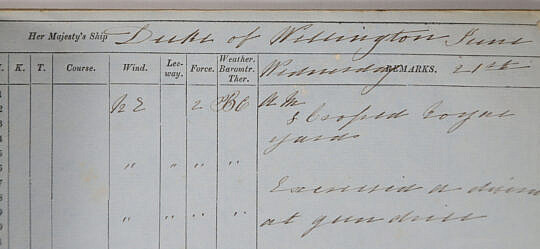 Her Majesty's Ship Duke of Wellington June
H. K. T. Course. Wind. Lee-way. Force. Weather. Baromtr. Ther. Wednesday REMARKS. 21st
1
2 N E 2 BC A M
3 & Crossed Royal
4 yards
5
6 " " " "
7
8 Exercised a division
9 " " " " at gun drill